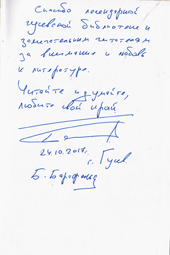 Спасибо легендарной
гусевской библиотеке и
замечательным читателям
за внимание и любовь
к литературе.
Читайте и думайте,
любите свой край
24.10.2017г.
г. Гусев
Б. Бартфельд